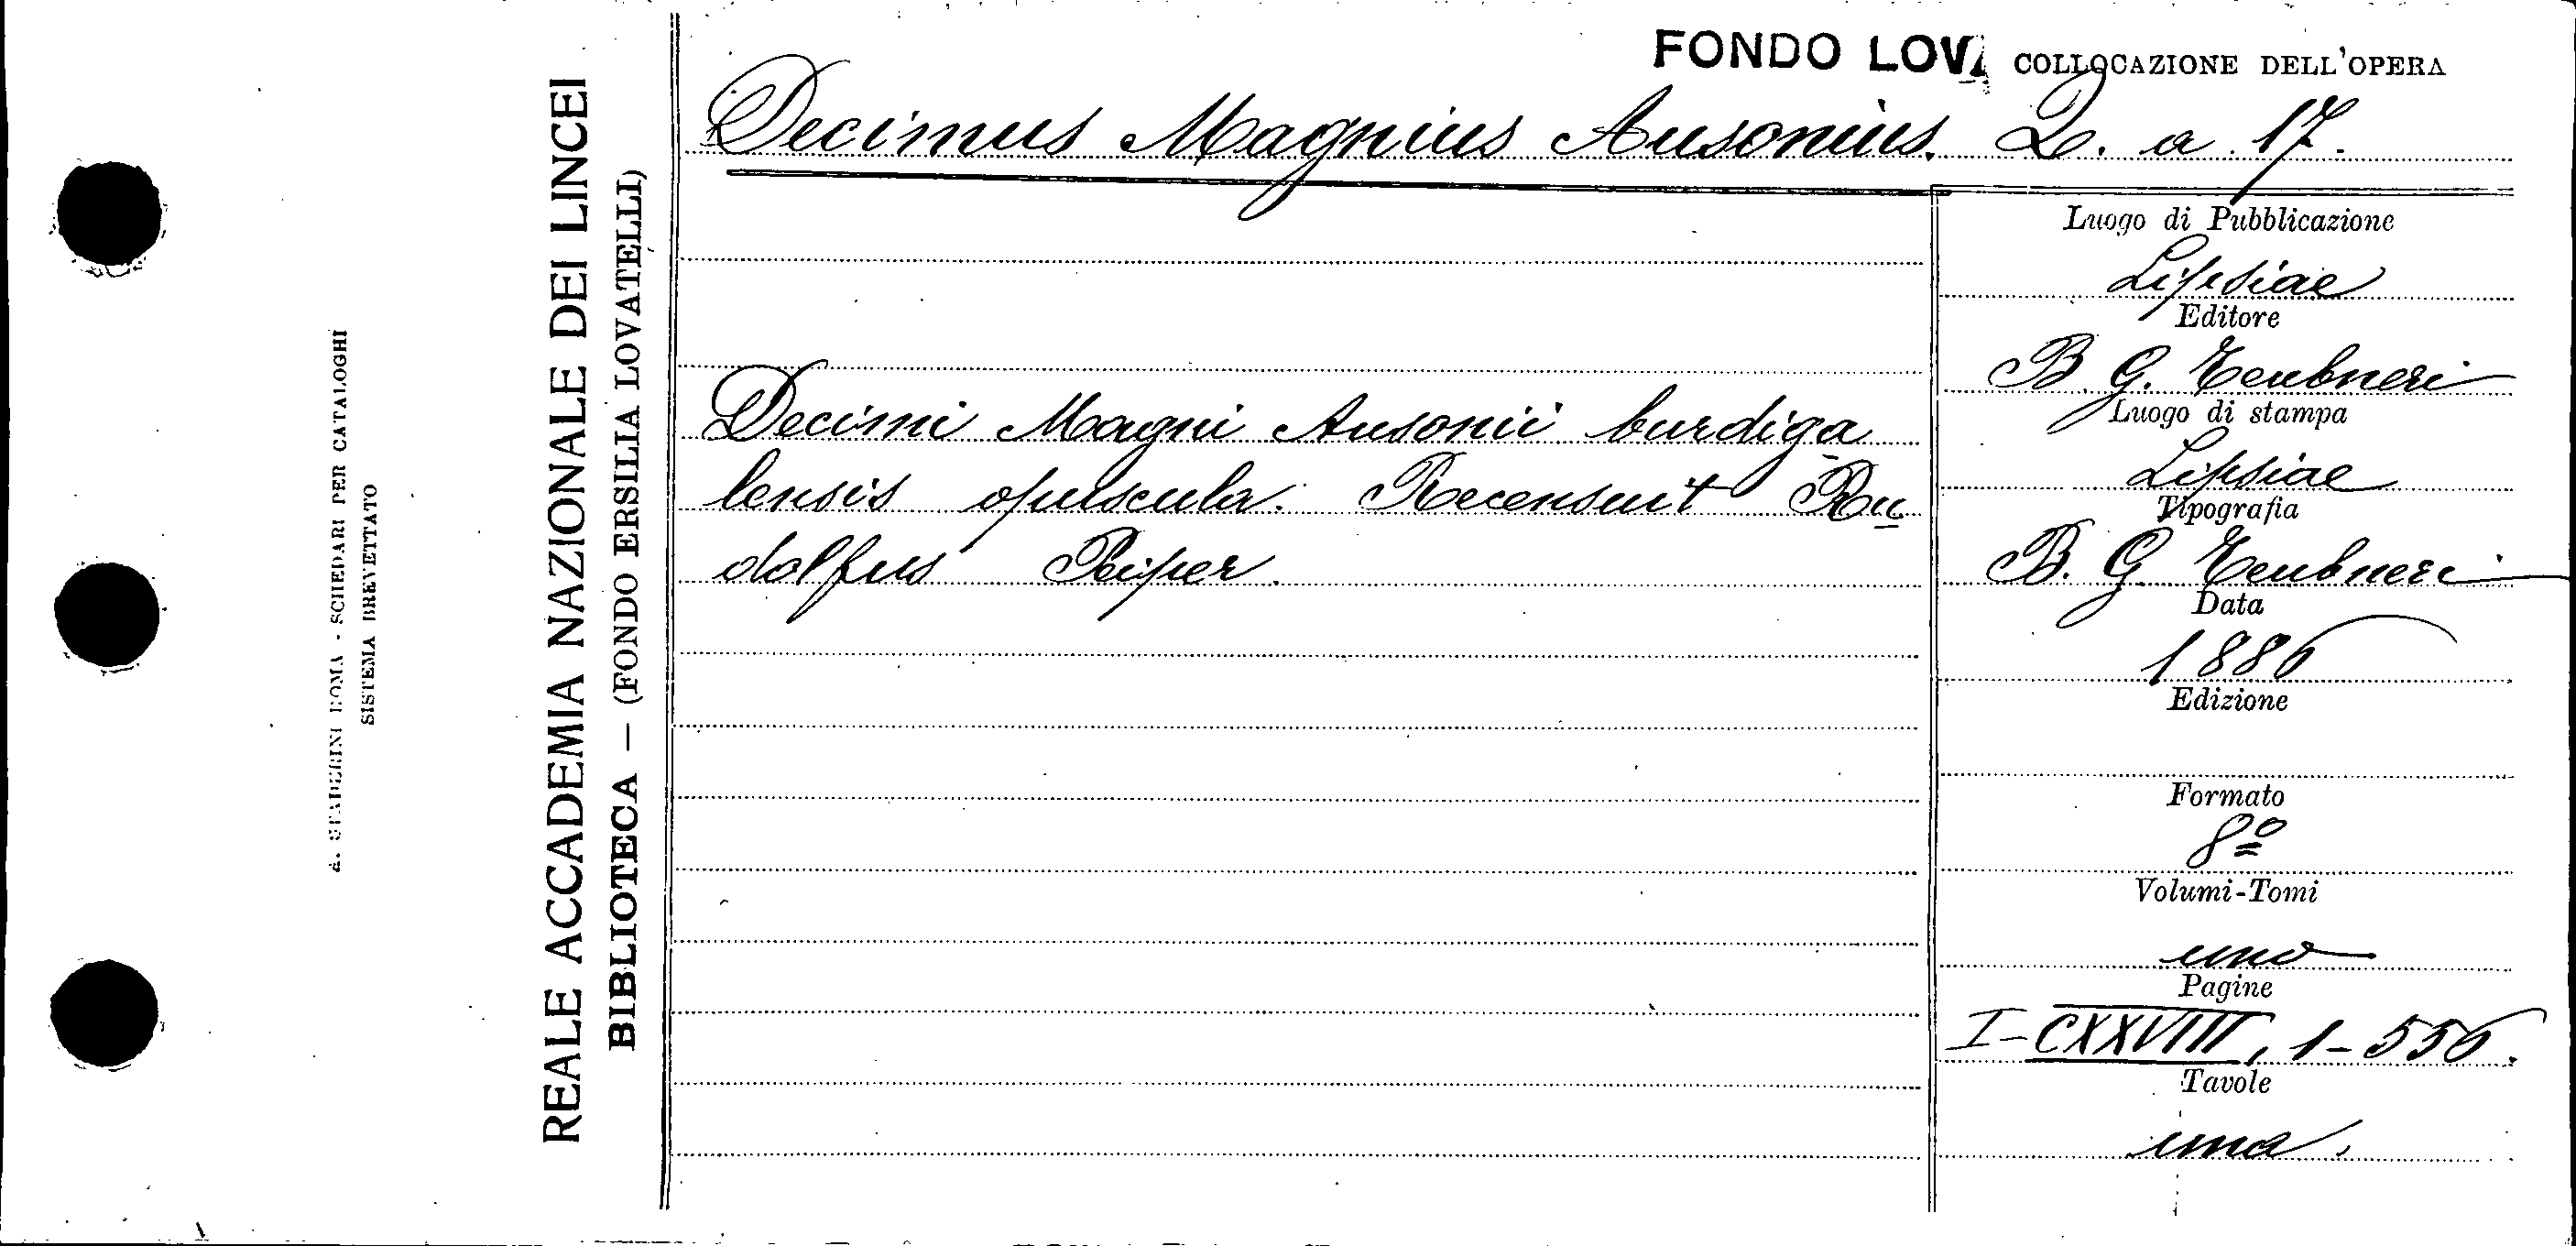 A. STADERINI ROMA - SCHEDARI PER CATALOGHI
SISTEMA BREVETTATO
REALE ACCADEMIA NAZIONALE DEI LINCEI
BIBLIOTECA — (FONDO ERSILIA LOVATELLI)
FONDO LOVA
COLLOCAZIONE DELL'OPERA
Decimus Magnius Ausonius. 2. a 17.
Decimi Magni Ausonii burdiga
lensis opuscula. Recensuit Ru
dolfus Peiper.
Luogo di Pubblicazione
Lipsiae
Editore
B. G. Teubneri
Luogo di stampa
Lipsiae
Tipografia
B. G. Teubneri
Data
1886
Edizione
Formato
8º
Volumi-Tomi
uno
Pagine
I-CXXVIII, 1-556.
Tavole
una.